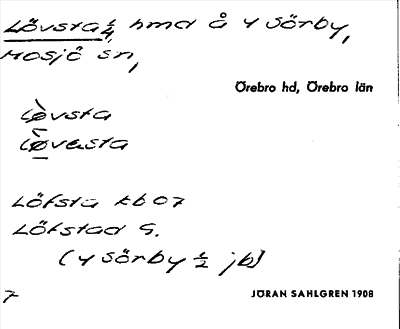 Lövsta 1/4, hmd å Y Sörby,
Mosjö sn,
Örebro hd, Örebro län
Löfsta kb 07
Löfstad G.
(Y Sörby 1/2 jb)
7
JÖRAN SAHLGREN 1908